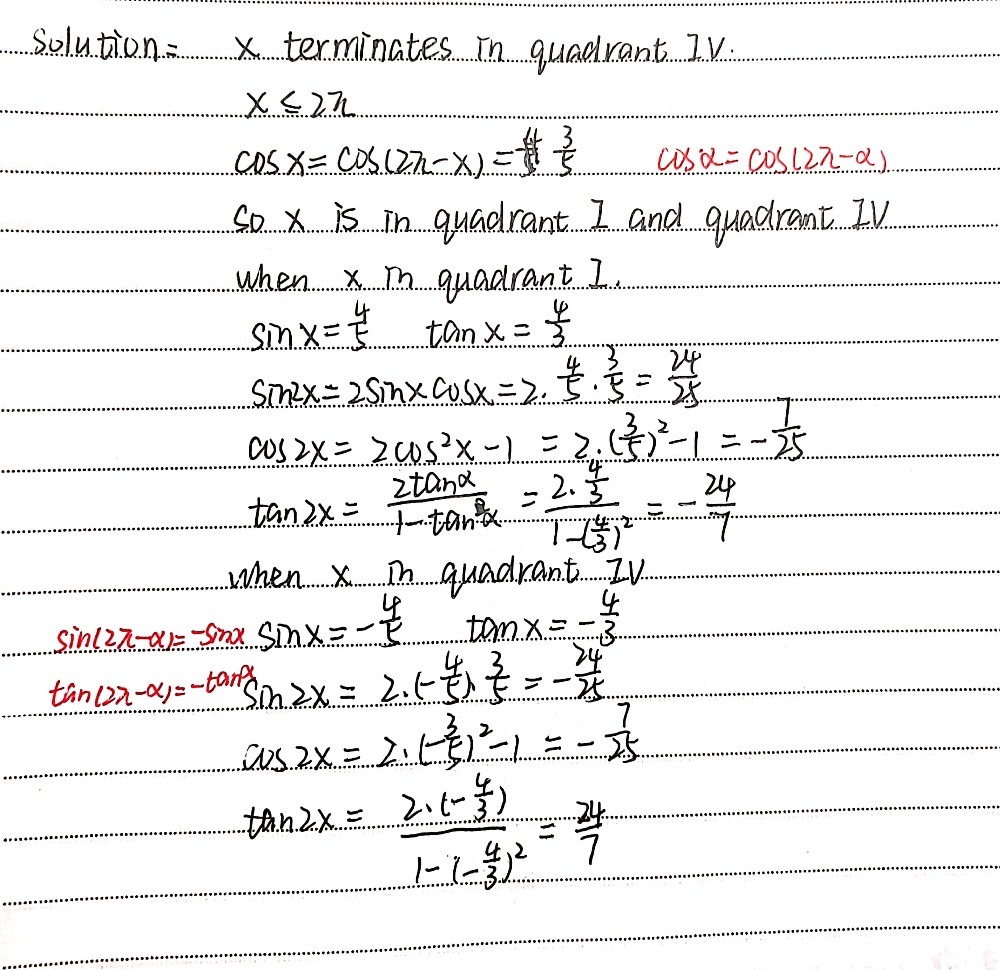 Solution= x terminates in quadrant IV.
x ≤ 2π
cos x = cos(2π-x) = 3/5 cos α = cos(2π-α)
so x is in quadrant I and quadrant IV
when x in quadrant I.
sin x = 4/5 tan x = 4/3
sin2x = 2sinx cosx = 2· 4/5 · 3/5 = 24/25
cos 2x = 2cos²x - 1 = 2·(3/5)² - 1 = - 7/25
tan 2x = 2tanα/(1-tan²α) = (2· 4/3)/(1-(4/3)²) = - 24/7
when x in quadrant IV
sin(2π-α) = -sinα sin x = - 4/5 tan x = - 4/3
tan(2π-α) = -tanα sin 2x = 2·(- 4/5)· 3/5 = - 24/25
cos 2x = 2·(- 3/5)² - 1 = - 7/25
tan 2x = (2·(- 4/3))/(1-(- 4/3)²) = 24/7